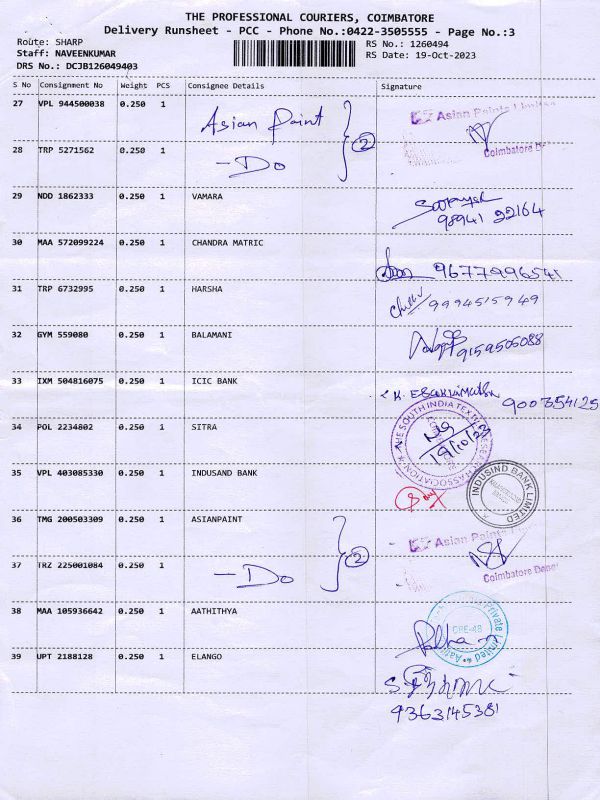 THE PROFESSIONAL COURIERS, COIMBATORE
Delivery Runsheet - PCC - Phone No.:0422-3505555 - Page No.:3
Route: SHARP
RS No.: 1260494
Staff: NAVEENKUMAR
RS Date: 19-Oct-2023
DRS No.: DCJB126049403
S No Consignment No Weight PCS Consignee Details Signature
27 VPL 944500038 0.250 1 Asian Paint Asian Paints Limited
28 TRP 5271562 0.250 1 - Do 2 Coimbatore
29 NDD 1862333 0.250 1 VAMARA
98941 22164
30 MAA 572099224 0.250 1 CHANDRA MATRIC 9677996541
31 TRP 6732995 0.250 1 HARSHA 9994515949
32 GYM 559080 0.250 1 BALAMANI 9159505088
33 IXM 504816075 0.250 1 ICIC BANK
34 POL 2234802 0.250 1 SITRA
35 VPL 403085330 0.250 1 INDUSAND BANK INDUSIND BANK LIMITED
36 TMG 200503309 0.250 1 ASIANPAINT 2 Asian Paints
37 TRZ 225001084 0.250 1 - Do Coimbatore Depot
38 MAA 105936642 0.250 1 AATHITHYA CBE-48
39 UPT 2188128 0.250 1 ELANGO
9363145381